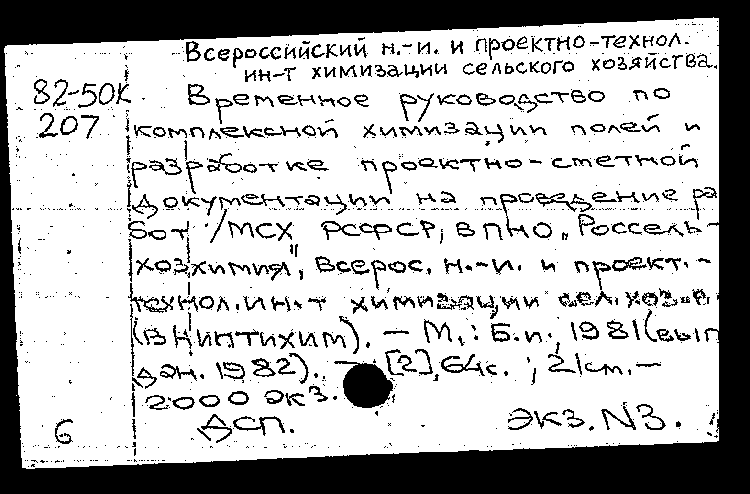 Всероссийский н.-и. и проектно-технол.
ин-т химизации сельского хозяйства.
82-50К Временное руководство по
207 комплексной химизации полей и
разработке проектно-сметной
документации на проведение ра
бот /МСХ РСФСР, ВПНО „Россель-
хозхимия", Всерос. н.-и. и проект.-
технол. ин-т химизации сел. хоз-в.
(ВНИПТИХИМ). – М.: Б.и., 1981(вып
дан. 1982). – [2], 64с. ; 21см. –
2000 экз.
6 ДСП. Экз. N3.